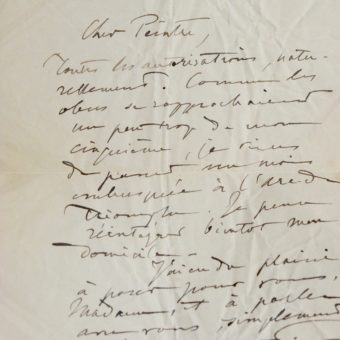 Cher Peintre,
Toutes les autorisations, natu-
rellement. Comme les
obus se rapprochaient
un peu trop de mon
cinquième, je viens
de passer un mois
embusquée à l'Arc de
Triomphe. Je pense
réintégrer bientôt mon
domicile.
J'ai eu du plaisir
à poser pour vous,
Madame, et à parler
avec vous, simplement